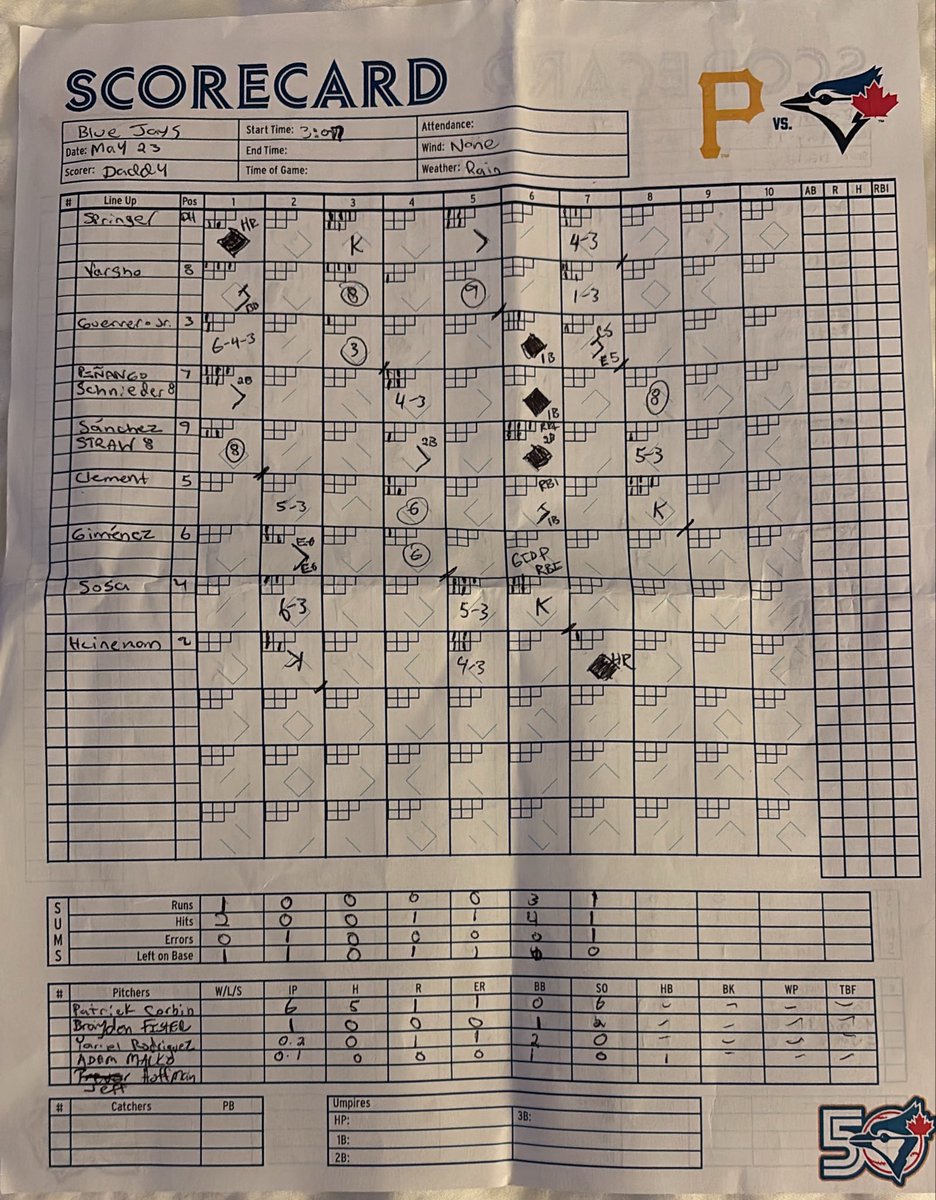 SCORECARD
P VS.
Blue Jays Start Time: 3:07 Attendance:
Date: May 23 End Time: Wind: None
Scorer: Daddy Time of Game: Weather: Rain
# Line Up Pos 1 2 3 4 5 6 7 8 9 10 AB R H RBI
Springer DH HR K 4-3
Varsho 8 8 9 1-3
Guerrero Jr. 3 6-4-3 3 1B CS E5
PIÑANGO 7 2B 4-3 1B 8
Schnieder 8
Sánchez 9 8 2B RBI 2B 5-3
STRAW 8
Clement 5 5-3 6 RBI 1B K
Giménez 6 E6 E6 6 GIDP RBI
Sosa 4 6-3 5-3 K
Heineman 2 K 4-3 HR
SUMS
Runs 1 0 0 0 0 3 1
Hits 2 0 0 1 1 4 1
Errors 0 1 0 0 0 0 1
Left on Base 1 1 0 1 1 0
# Pitchers W/L/S IP H R ER BB SO HB BK WP TBF
Patrick Corbin 6 5 1 1 0 6 - - - -
Braydon FISHER 1 0 0 0 1 2 - - - -
Yariel Rodriguez 0.2 0 1 1 2 0 - - - -
ADAM MACKO 0.1 0 0 0 1 0 1 - - -
Jeff Hoffman
# Catchers PB
Umpires
HP: 3B:
1B:
2B:
50